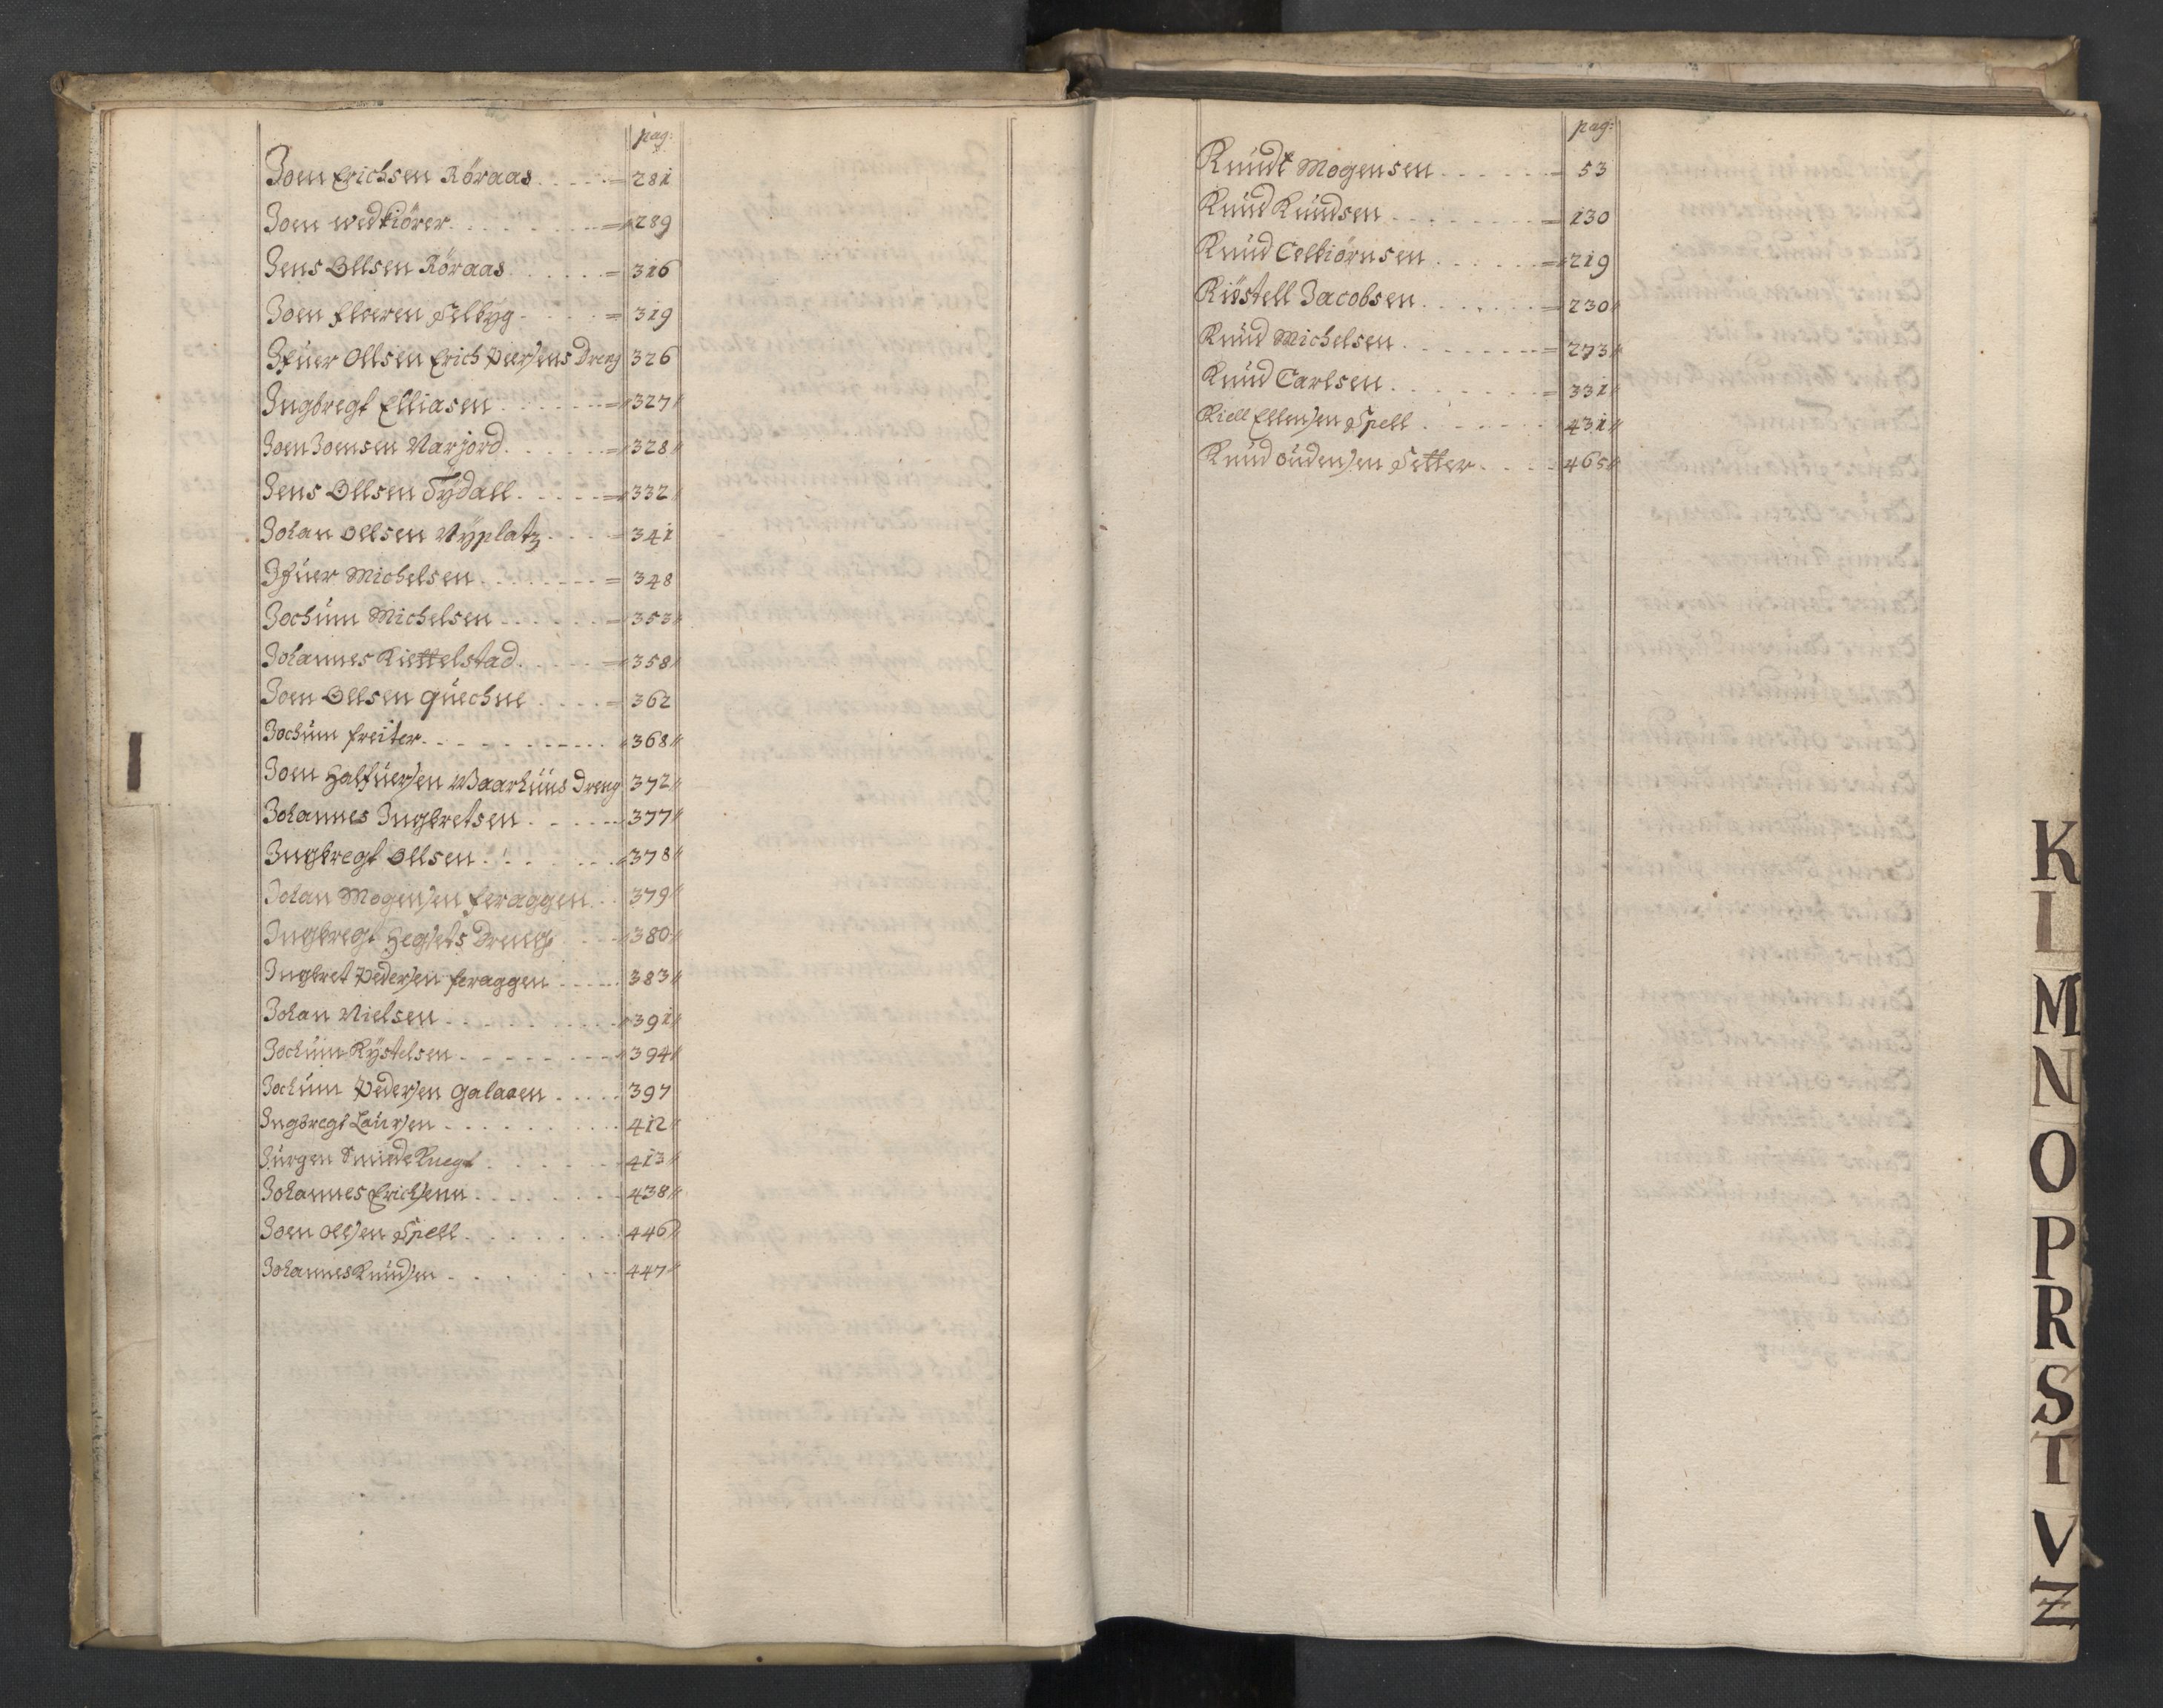 pag:
Joen Erichsen Röraas . . . . . = 281
Joen wedkiörer . . . . . . . . = 289
Jens Ollsen Röraas . . . . . . = 316
Joen floeren Selbÿg . . . . . = 319
Ifuer Ollsen Erich Peersens Dreng 326
Ingbregt Elliasen . . . . . . = 327 "
Joen Joensen Narjord . . . . . = 328 "
Jens Ollsen Tydall . . . . . = 332 "
Johan Ollsen Nÿplatz . . . . = 341
Ifuer Michelsen . . . . . . . . = 348
Jochum Michelsen . . . . . . = 353 "
Johannes Kiettelstad . . . . . = 358 "
Joen Ollsen quechne . . . . = 362
Jochum freiter . . . . . . . . . . . " 368 "
Joen Halfuersen Waarhuus Dreng 372 "
Johannes Ingbretsen . . . . . . . 377 "
Ingbregt Ollsen . . . . . . . . 378 "
Johan Mogensen feraggen . . 379 "
Ingbregt Hegsets Dreng . . . . 380 "
Ingbret Pedersen feraggen . . . . . 383 "
Johan Nielsen . . . . . . . . . . " 391 "
Jochum Kÿstelsen . . . . . . . . . " 394 "
Jochum Pedersen Galaaen . . . . . 397
Ingbregt Laursen . . . . . . . . . . 412 "
Jürgen Smede Knegt . . . . . . . 413 "
Johannes Erichsenn . . . . . . . . 438 "
Joen Ollsen Spell . . . . . . . . . 446 "
Johannes Knudsen . . . . . . . . 447 "
pag:
Knudt Mogensen . . . . . . = 53
Knud Knudsen . . . . . . . . = 130
Knud Celbiörnsen . . . . . . = 219
Kiöstell Jacobsen . . . . . . . = 230 "
Knud Michelsen . . . . . . . . . = 273 "
Knud Carlsen . . . . . . . . = 331 "
Kiell Ellensen Spell . . . . . . . 431 "
Knud oudensen Setter . . . . 465 "
K
L
M
N
O
P
R
S
T
V
Z